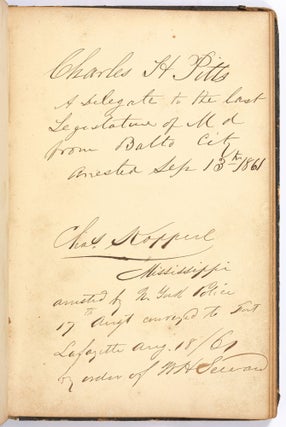 Charles H Pitts
A Delegate to the last
Legislature of Md
from Balto City
arrested Sep 13th 1861
Chas Kopperl
Mississippi
arrested by N. York Police
17th Augt conveyed to Fort
Lafayette Aug. 18/61
by order of WH Seward